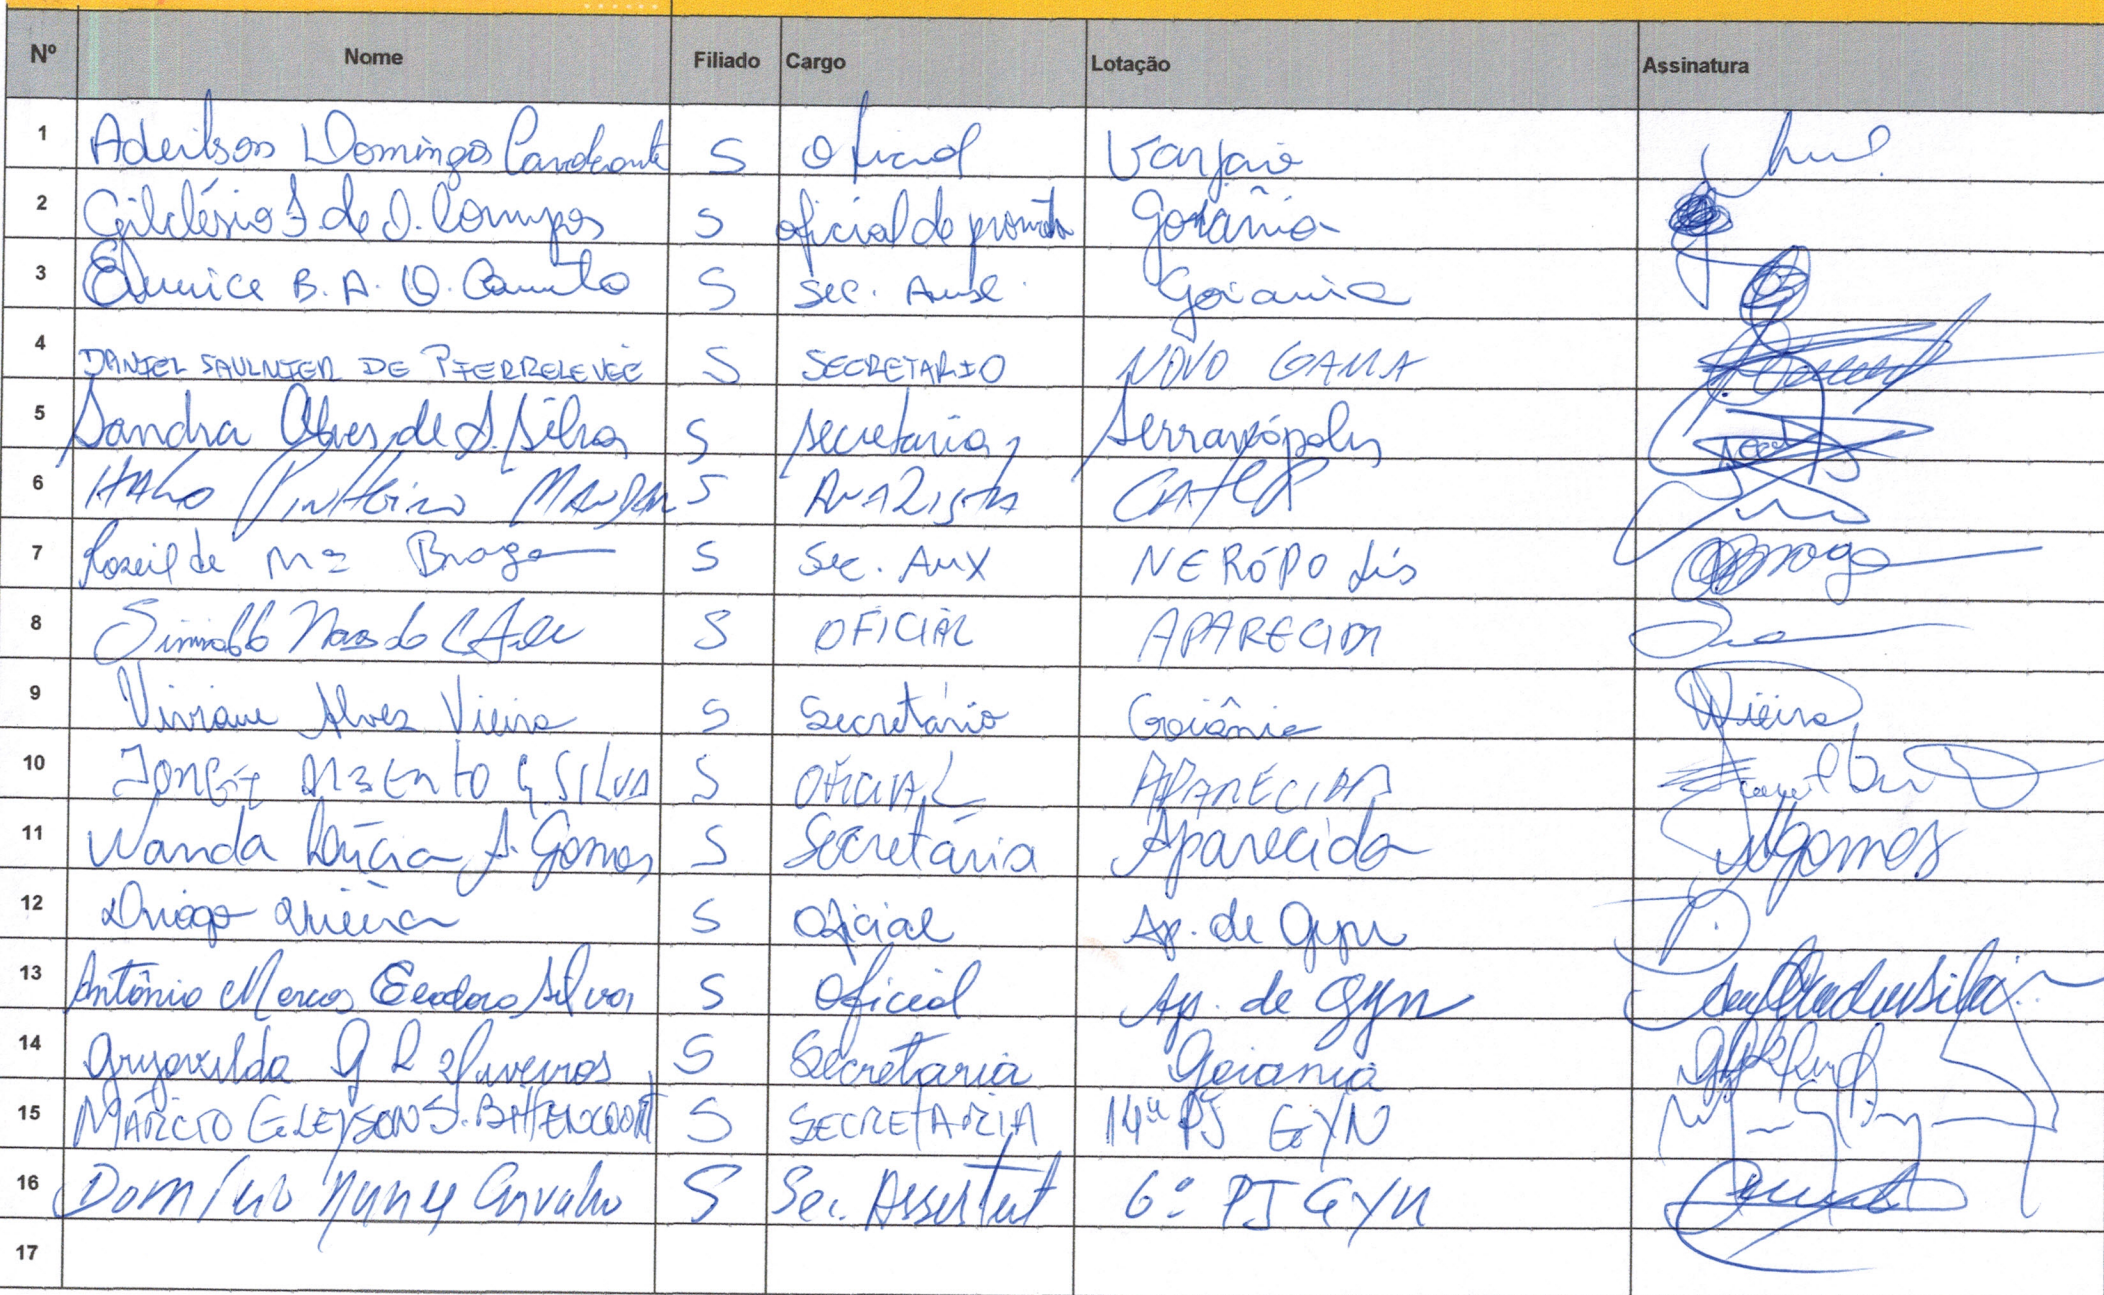 Nº Nome Filiado Cargo Lotação Assinatura
1 Adeilson Domingos Cavalcante S Oficial Varjão
2 Gilclésio F. de S. Campos S oficial de promot Goiânia
3 Eunice B. A. O. Camilo S Sec. Aux. Goiania
4 DANIEL SAULNIER DE PIERRELEVÉE S SECRETARIO NOVO GAMA
5 Sandra Alves de S. Silva S secretaria Serranópolis
6 Pinheiro S Analista
7 Roseilde Mª Braga S Sec. Aux NERÓPOLIS Braga
8 S OFICIAL APARECIDA
9 Viviane Alves Vieira S Secretário Goiânia Vieira
10 SILVA S OFICIAL APARECIDA
11 Wanda Lúcia A. Gomes S Secretária Aparecida WGomes
12 Vieira S Oficial Ap. de Gyn
13 Antônio Marcos Silva S Oficial Ap. de Gyn
14 G S Secretaria Goiania
15 MÁRCIO GLEYSON S. BITTENCOURT S SECRETARIA 14ª PJ GYN
16 Nunes Carvalho S Sec. Assistent 6ª PJ GYN
17